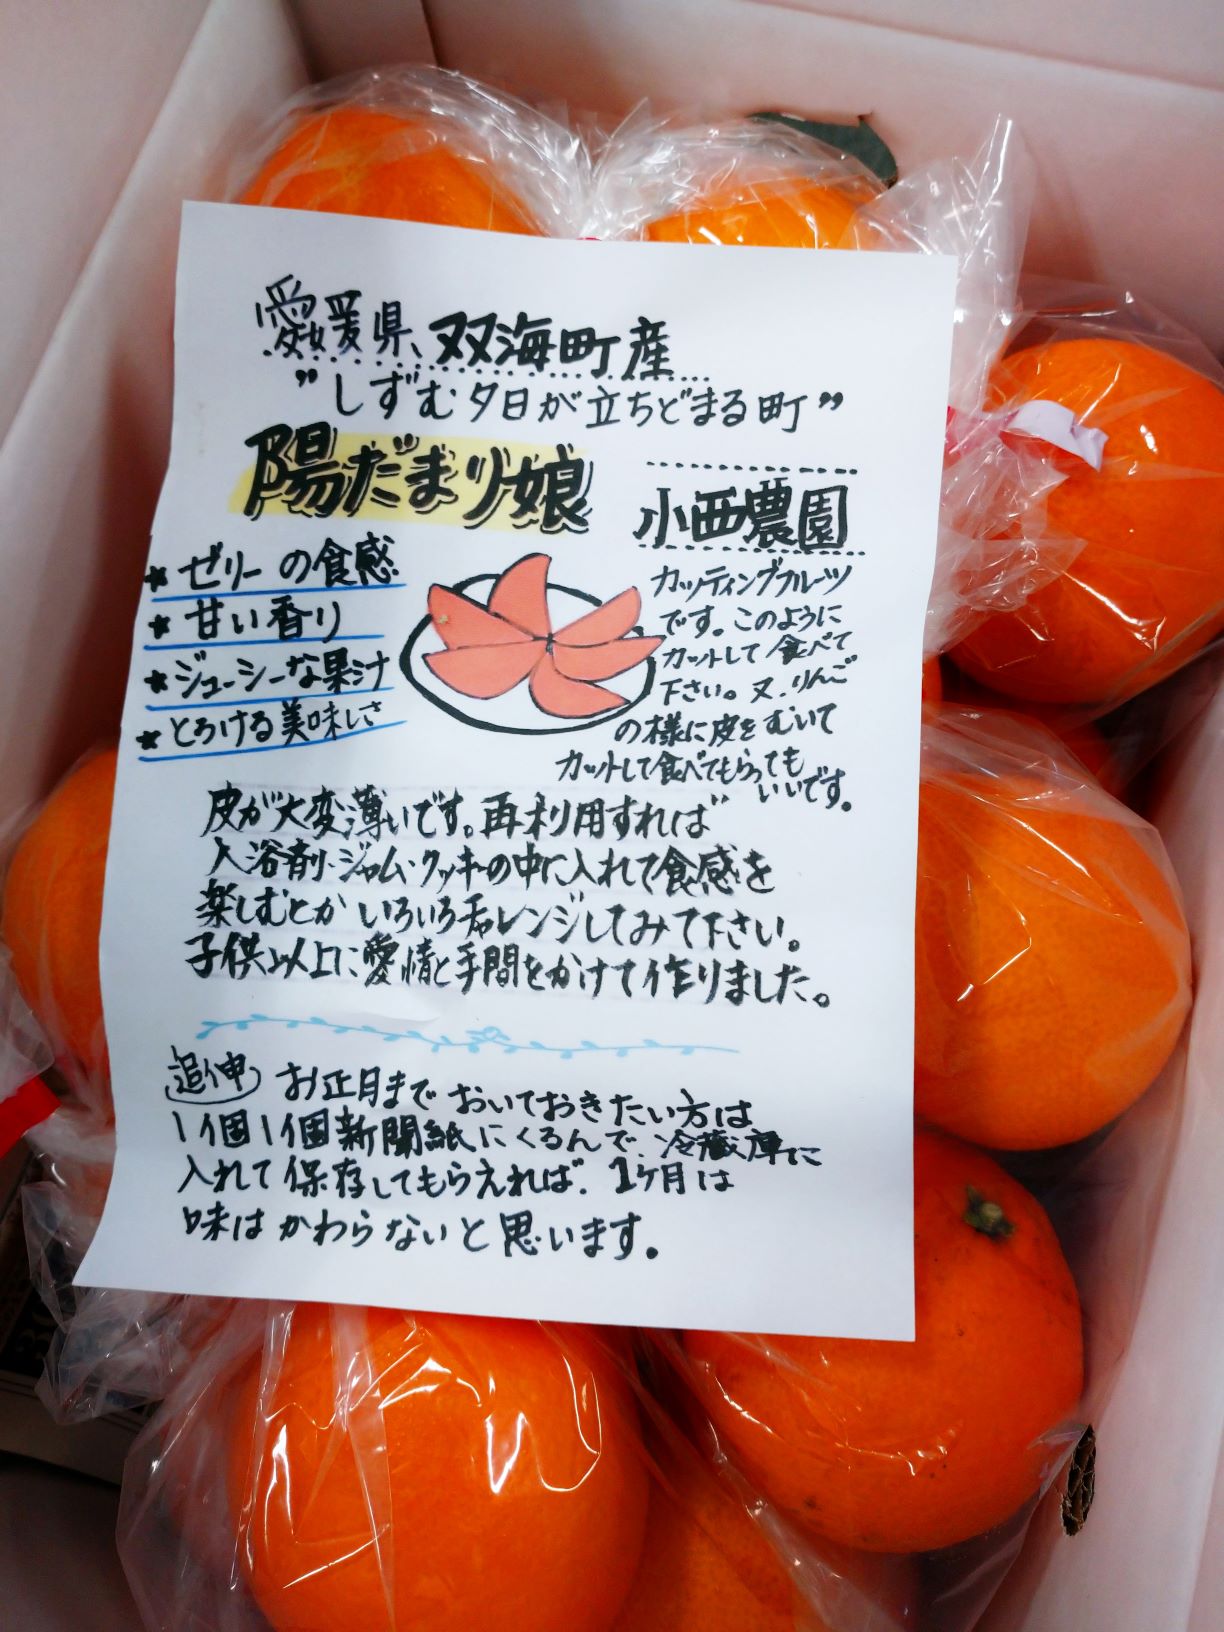 愛媛県 双海町産
"しずむ夕日が立ちどまる町"
陽だまり娘
小西農園
★ ゼリーの食感
★ 甘い香り
★ ジューシーな果汁
★ とろける美味しさ
カッティングフルーツ
です。このように
カットして食べて
下さい。又、りんご
の様に皮をむいて
カットして食べてもらっても
いいです。
皮が大変薄いです。再利用すれば
入浴剤・ジャム・クッキーの中に入れて食感を
楽しむとかいろいろチャレンジしてみて下さい。
子供以上に愛情と手間をかけて作りました。
追伸 お正月までおいておきたい方は
1個1個新聞紙にくるんで、冷蔵庫に
入れて保存してもらえれば、1ケ月は
味はかわらないと思います。